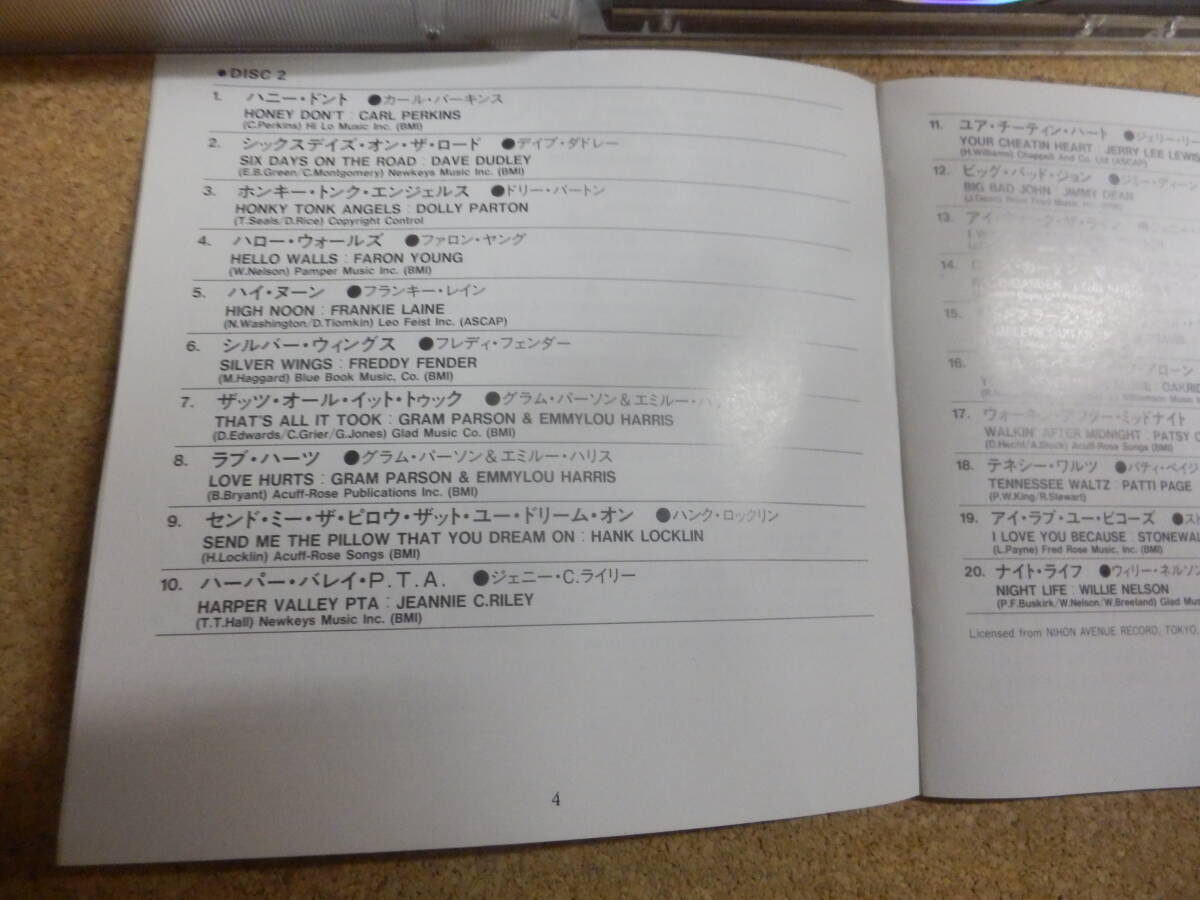 ●DISC 2
1. ハニー・ドント ●カール・パーキンス
HONEY DON'T : CARL PERKINS
(C.Perkins) Hi Lo Music Inc. (BMI)
2. シックスデイズ・オン・ザ・ロード ●デイブ・ダドレー
SIX DAYS ON THE ROAD : DAVE DUDLEY
(E.B.Green/C.Montgomery) Newkeys Music Inc. (BMI)
3. ホンキー・トンク・エンジェルス ●ドリー・パートン
HONKY TONK ANGELS : DOLLY PARTON
(T.Seals/D.Rice) Copyright Control
4. ハロー・ウォールズ ●ファロン・ヤング
HELLO WALLS : FARON YOUNG
(W.Nelson) Pamper Music Inc. (BMI)
5. ハイ・ヌーン ●フランキー・レイン
HIGH NOON : FRANKIE LAINE
(N.Washington/D.Tiomkin) Leo Feist Inc. (ASCAP)
6. シルバー・ウィングス ●フレディ・フェンダー
SILVER WINGS : FREDDY FENDER
(M.Haggard) Blue Book Music, Co. (BMI)
7. ザッツ・オール・イット・トゥック ●グラム・パーソン&エミルー・
THAT'S ALL IT TOOK : GRAM PARSON & EMMYLOU HARRIS
(D.Edwards/C.Grier/G.Jones) Glad Music Co. (BMI)
8. ラブ・ハーツ ●グラム・パーソン&エミルー・ハリス
LOVE HURTS : GRAM PARSON & EMMYLOU HARRIS
(B.Bryant) Acuff-Rose Publications Inc. (BMI)
9. センド・ミー・ザ・ピロウ・ザット・ユー・ドリーム・オン ●ハンク・ロックリン
SEND ME THE PILLOW THAT YOU DREAM ON : HANK LOCKLIN
(H.Locklin) Acuff-Rose Songs (BMI)
10. ハーパー・バレイ・P.T.A. ●ジェニー・C.ライリー
HARPER VALLEY PTA : JEANNIE C.RILEY
(T.T.Hall) Newkeys Music Inc. (BMI)
4
11. ユア・チーティン・ハート ●ジェリー・リー
YOUR CHEATIN HEART : JERRY LEE LEWIS
(H.Williams) Chappell And Co. Ltd (ASCAP)
12. ビッグ・バッド・ジョン ●ジミー・ディーン
BIG BAD JOHN : JIMMY DEAN
13. アイ・
14.
15.
16.
17. ウォーキン・アフター・ミッドナイト
WALKIN' AFTER MIDNIGHT : PATSY
(D.Hecht/A.Block) Acuff-Rose Songs (BMI)
18. テネシー・ワルツ ●パティ・ペイジ
TENNESSEE WALTZ : PATTI PAGE
(P.W.King/R.Stewart)
19. アイ・ラブ・ユー・ビコーズ
I LOVE YOU BECAUSE : STONEWAL
(L.Payne) Fred Rose Music, Inc. (BMI)
20. ナイト・ライフ ●ウィリー・ネルソン
NIGHT LIFE : WILLIE NELSON
(P.F.Buskirk/W.Nelson/W.Breeland) Glad Mus
Licensed from NIHON AVENUE RECORD, TOKYO,